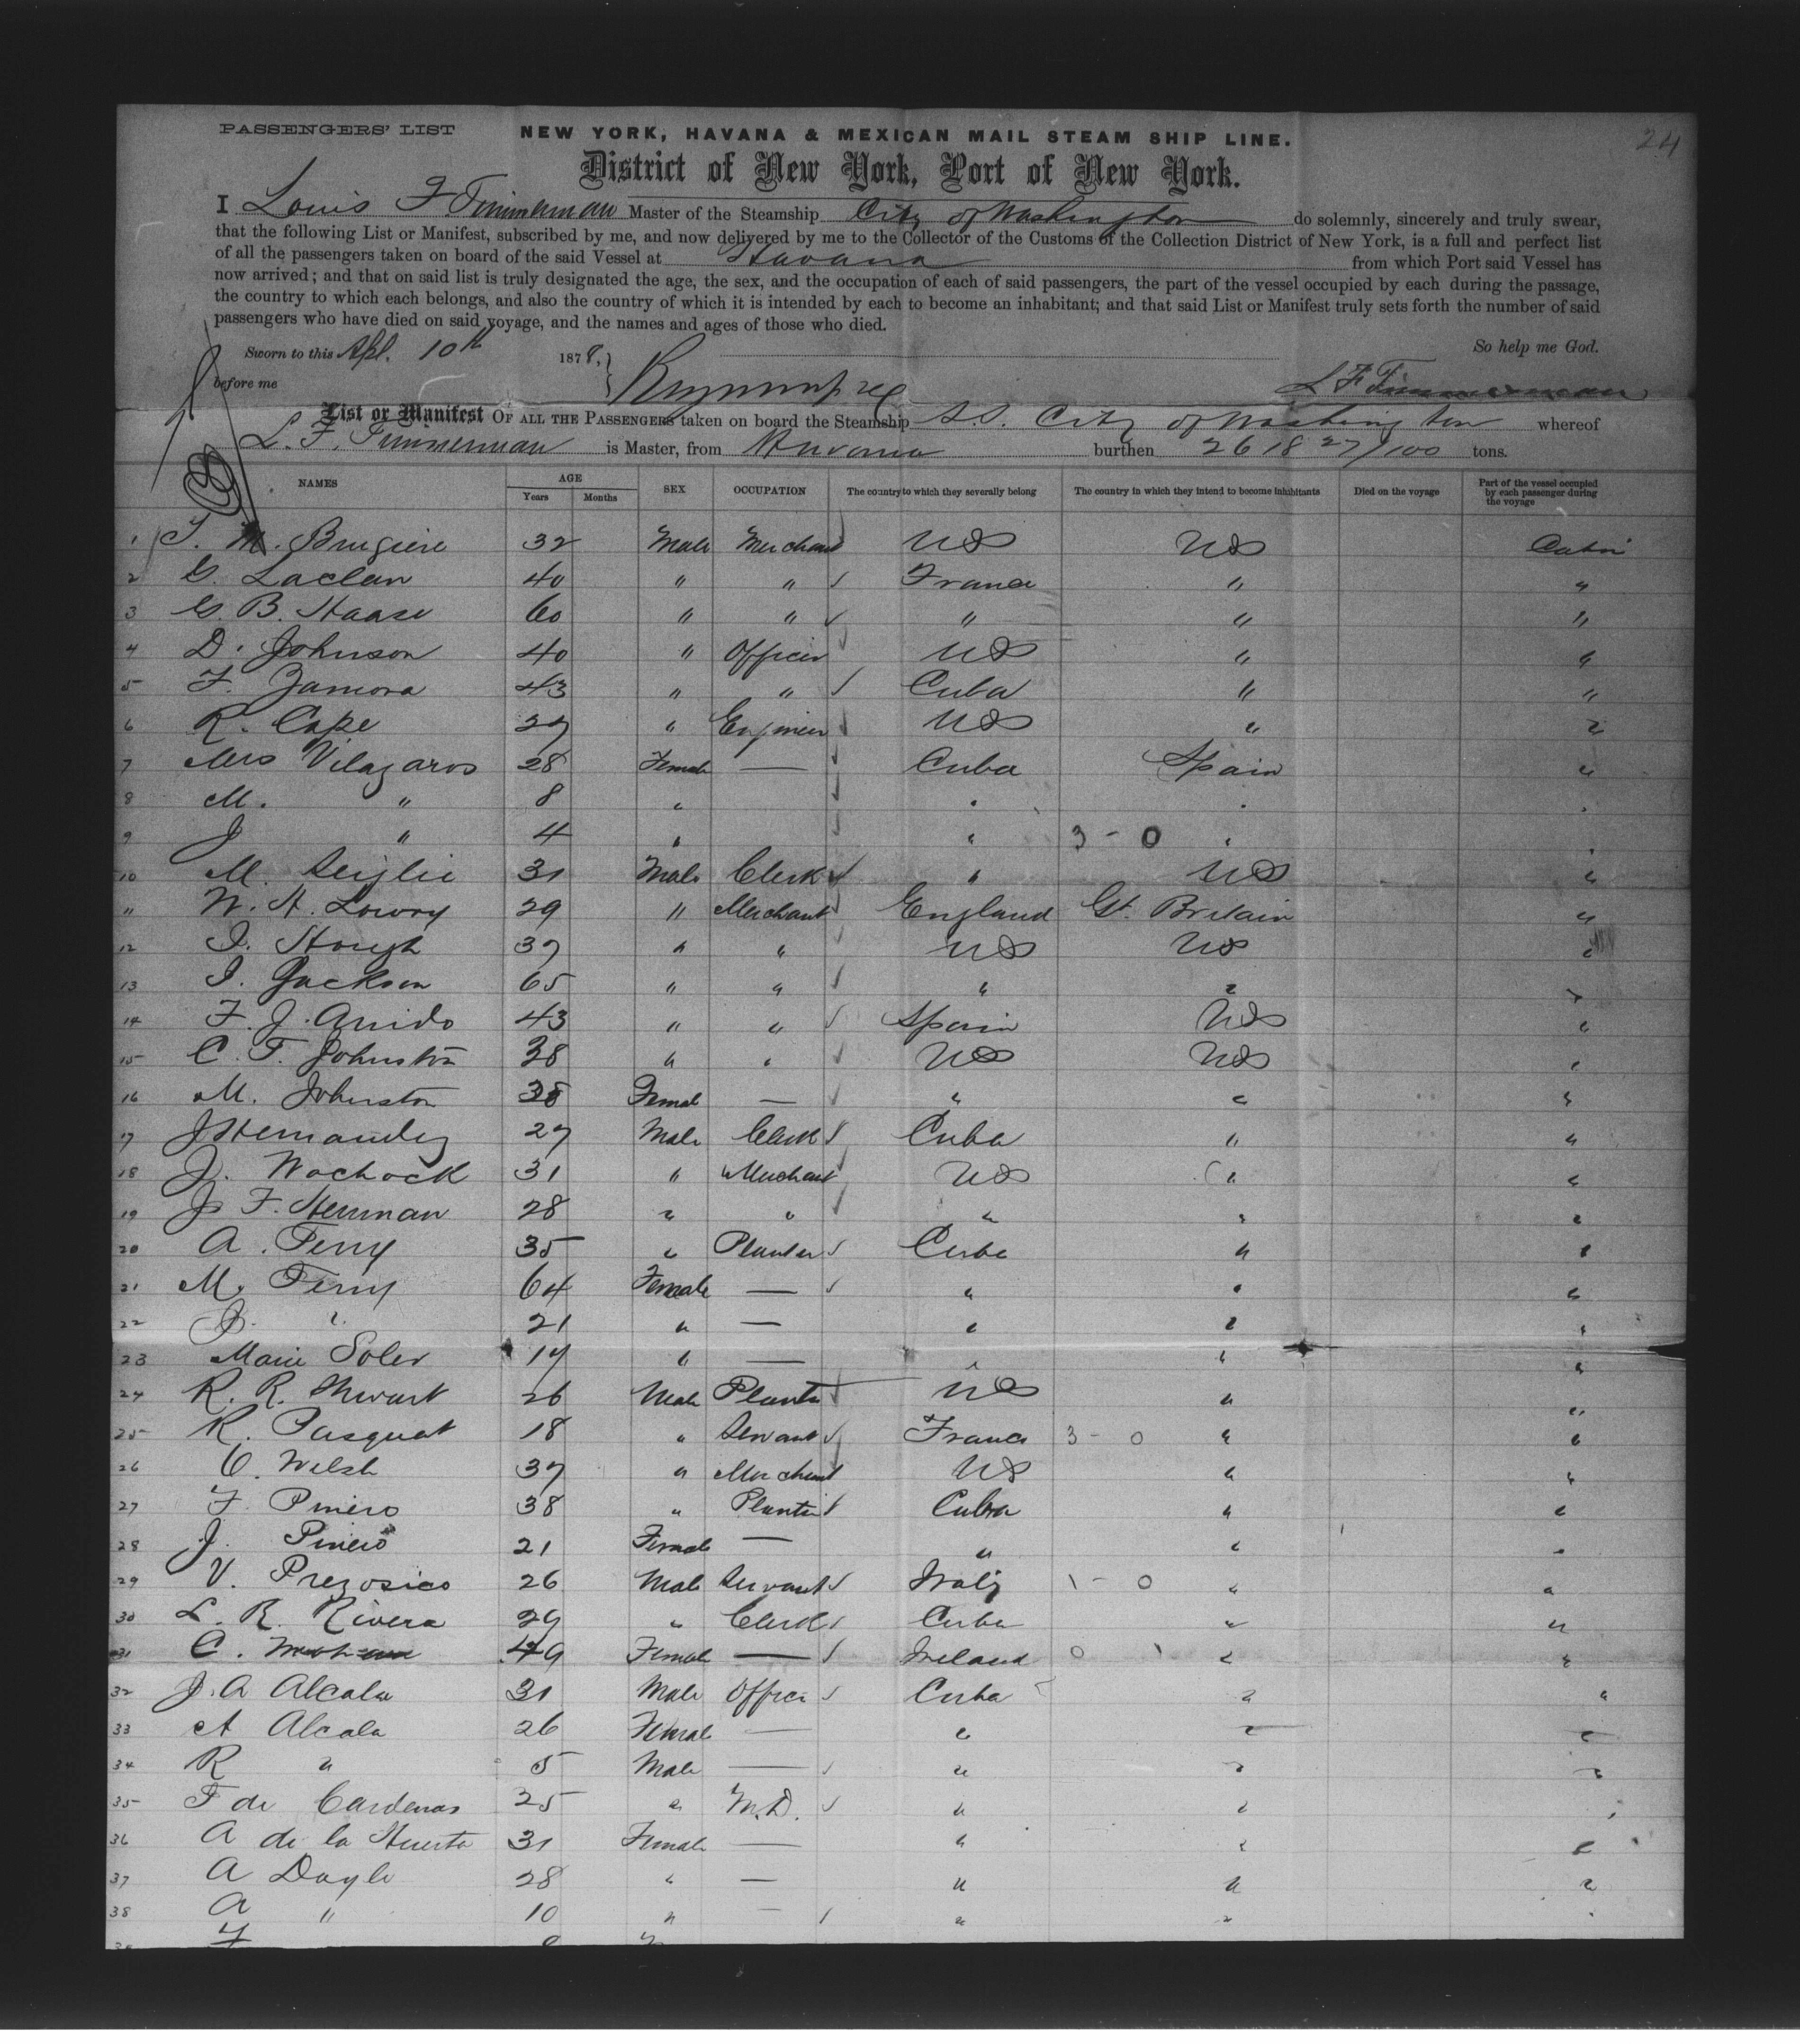 PASSENGERS' LIST NEW YORK, HAVANA & MEXICAN MAIL STEAM SHIP LINE. 24
District of New York, Port of New York.
I Louis F Timmerman Master of the Steamship City of Washington do solemnly, sincerely and truly swear,
that the following List or Manifest, subscribed by me, and now delivered by me to the Collector of the Customs of the Collection District of New York, is a full and perfect list
of all the passengers taken on board of the said Vessel at Havana from which Port said Vessel has
now arrived; and that on said list is truly designated the age, the sex, and the occupation of each of said passengers, the part of the vessel occupied by each during the passage,
the country to which each belongs, and also the country of which it is intended by each to become an inhabitant; and that said List or Manifest truly sets forth the number of said
passengers who have died on said voyage, and the names and ages of those who died.
Sworn to this Apl. 10th 1878, So help me God.
before me L F Timmerman
List or Manifest OF ALL THE PASSENGERS taken on board the Steamship S.S. City of Washington whereof
L. F. Timmerman is Master, from Havana burthen 2618 27/100 tons.
NAMES AGE Years Months SEX OCCUPATION The country to which they severally belong The country in which they intend to become inhabitants Died on the voyage Part of the vessel occupied by each passenger during the voyage
1 T. M. Brugiere 32 Male Merchant US US Cabin
2 G. Laclan 40 " " France " "
3 G. B. Haase 60 " " " " "
4 D. Johnson 40 " Officer US " "
5 F. Zamora 43 " " Cuba " "
6 R. Cape 27 " Engineer US " "
7 Mrs Vilazaros 28 Female — Cuba Spain "
8 M. " 8 " " " "
9 J " 4 " " 3 - 0 " "
10 M. Seiglie 31 Male Clerk " US "
11 W. H. Lowry 29 " Merchant England Gt. Britain "
12 I. Hough 37 " " US US "
13 I. Jackson 65 " " " " "
14 F. J. Arrido 43 " " Spain US "
15 C. T. Johnston 38 " " US US "
16 M. Johnston 38 Female — " " "
17 J Hernandez 27 Male Clerk Cuba " "
18 J. Wochock 31 " Merchant US " "
19 J. F. Herrman 28 " " " " "
20 A. Ferry 35 " Planter Cuba " "
21 M. Ferry 64 Female — " " "
22 J. " 21 " — " " "
23 Marie Soler 14 " — " " "
24 R. R. 26 Male Planter US " "
25 R. Pasquat 18 " Servant France 3 - 0 " "
26 C. Welsh 37 " Merchant US " "
27 F. Pinero 38 " Planter Cuba " "
28 J. Pinero 21 Female — " " "
29 V. Prezosico 26 Male Servant Italy 1 - 0 " "
30 L. R. Rivera 29 " Clerk Cuba " "
31 C. 49 Female — Ireland 0 1 " "
32 J. A Alcala 31 Male Officer Cuba " "
33 A Alcala 26 Female — " " "
34 R " 5 Male — " " "
35 F de Cardenas 25 " M.D. " " "
36 A de la Huerta 31 Female — " " "
37 A Doyle 28 " — " " "
38 A " 10 " — " " "